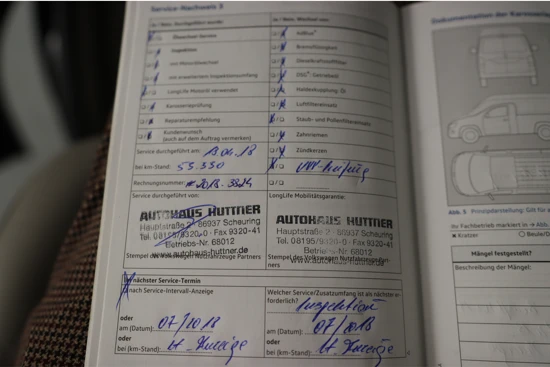 Service-Nachweis 3
Ja / Nein, Durchgeführt wurde:
Ja / Nein, Wechsel von:
Ölwechsel-Service
AdBlue®
Inspektion
Bremsflüssigkeit
mit Motorölwechsel
Dieselkraftstofffilter
mit erweitertem Inspektionsumfang
DSG®-Getriebeöl
LongLife Motoröl verwendet
Haldexkupplung: Öl
Karosserieprüfung
Luftfiltereinsatz
Reparaturempfehlung
Staub- und Pollenfiltereinsatz
Kundenwunsch
(auch auf dem Auftrag vermerken)
Zahnriemen
Zündkerzen
Service durchgeführt am: 13.04.18
bei km-Stand: 55.350
Rechnungsnummer:
Service durchgeführt von:
LongLife Mobilitätsgarantie:
AUTOHAUS HUTTNER
Hauptstraße 2 · 86937 Scheuring
Tel. 08195/9320-0 · Fax 9320-41
Betriebs-Nr. 68012
www.autohaus-huttner.de
Stempel des Volkswagen Nutzfahrzeuge Partners
AUTOHAUS HUTTNER
Hauptstraße 2 · 86937 Scheuring
Tel. 08195/9320-0 · Fax 9320-41
Betriebs-Nr. 68012
www.autohaus-huttner.de
Stempel des Volkswagen Nutzfahrzeuge Partners
nächster Service-Termin
nach Service-Intervall-Anzeige
Welcher Service/Zusatzumfang ist als nächster erforderlich?
Inspektion
oder
am (Datum): 07/2018
oder
bei (km-Stand): lt. Anzeige
oder
am (Datum): 07/2018
oder
bei (km-Stand): lt. Anzeige
Dokumentation der Karosserie
Abb. 5 Prinzipdarstellung: Sichtprüfung
Ihr Fachbetrieb markiert in
Kratzer
Beule/
Mängel festgestellt?
Beschreibung der Mängel: